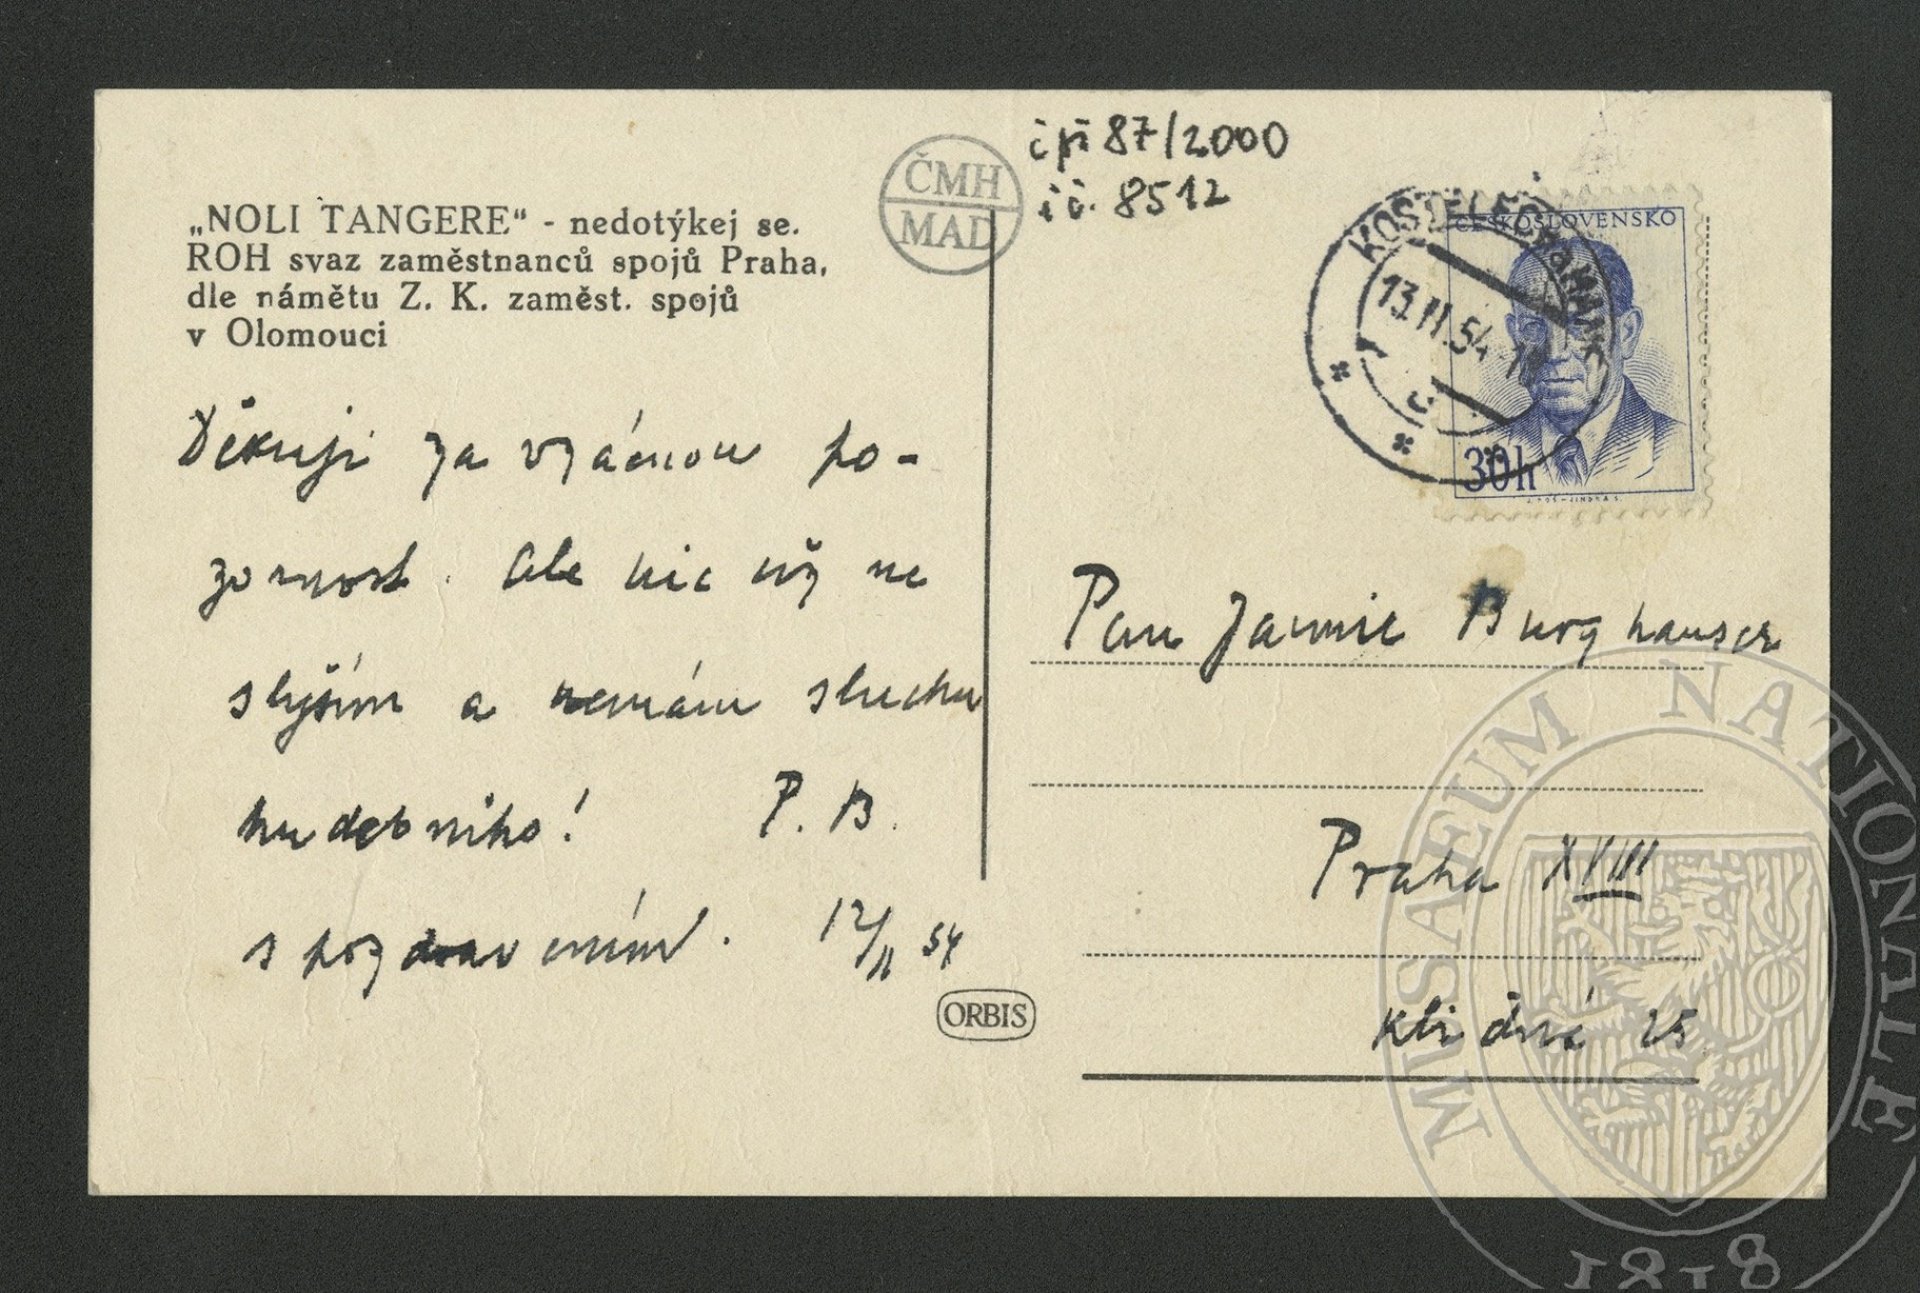 „NOLI TANGERE“ - nedotýkej se.
ROH svaz zaměstnanců spojů Praha,
dle námětu Z. K. zaměst. spojů
v Olomouci
Děkuji za vzácnou po-
zornost. Ale nic už ne
slyším a nemám sluchu
hudebního! P. B.
s pozdravením. 12/II 54
ČMH
MAD
č př 87/2000
i č. 8512
KOSTELEC
13.II.54
ČESKOSLOVENSKO
30h
Pan Jarmil Burghauser
Praha XVIII
Klidná 25
ORBIS
MUSAEUM NATIONALE
1818